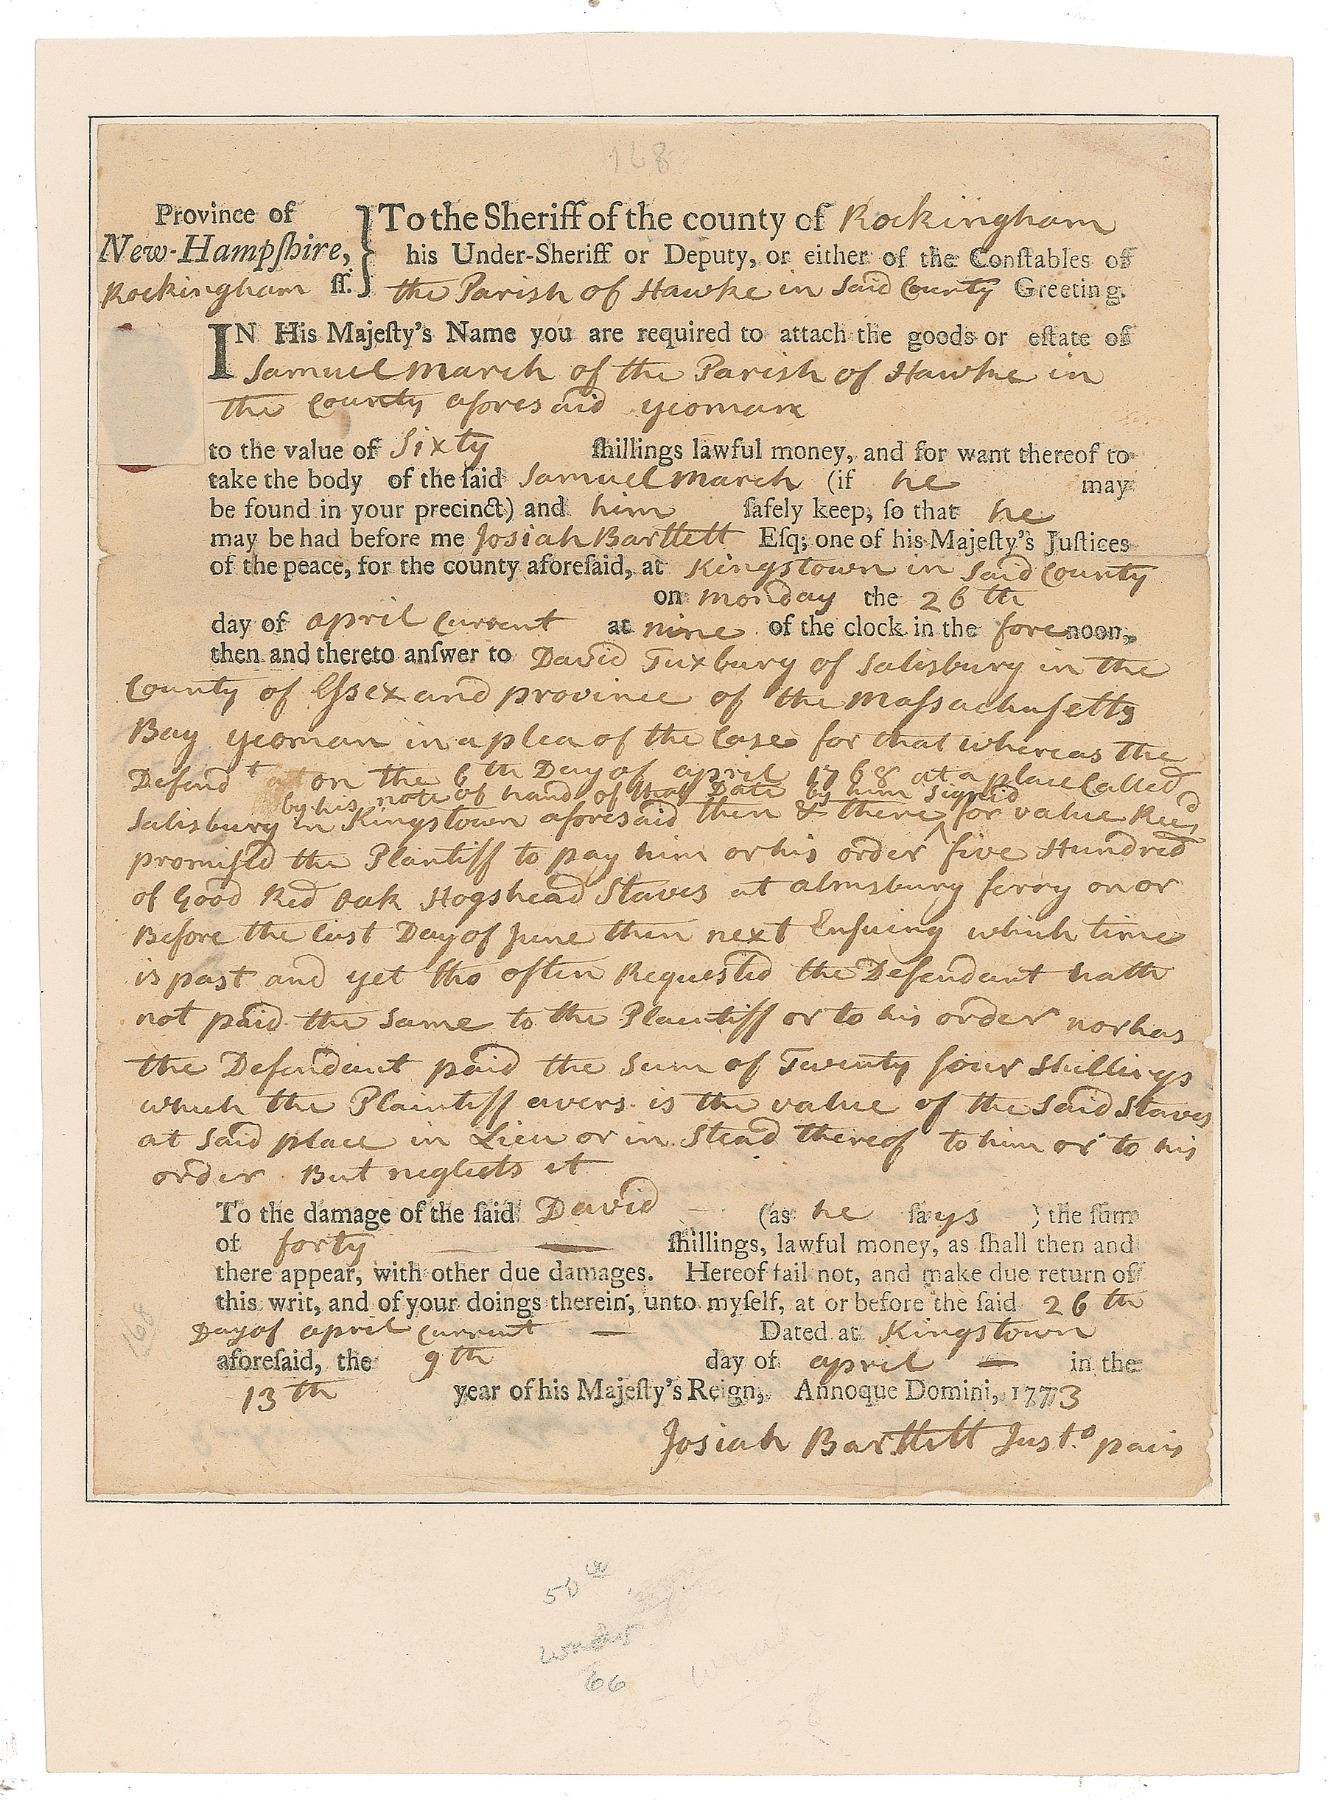 168
Province of
New-Hampſhire,
Rockingham ſſ.
To the Sheriff of the county of Rockingham
his Under-Sheriff or Deputy, or either of the Conſtables of
the Parish of Hawke in Said County Greeting.
IN His Majeſty's Name you are required to attach the goods or eſtate of
Samuel March of the Parish of Hawke in
the County aforesaid yeoman
to the value of Sixty ſhillings lawful money, and for want thereof to
take the body of the ſaid Samuel March (if he may
be found in your precinct) and him ſafely keep, ſo that he
may be had before me Josiah Bartlett Eſq; one of his Majeſty's Juſtices
of the peace, for the county aforeſaid, at Kingstown in Said County
on monday the 26th
day of april Current at nine of the clock in the forenoon,
then and thereto anſwer to David Tuxbury of Salisbury in the
County of Eſsex and province of the Maſsachuſetts
Bay yeoman in a plea of the Case for that whereas the
Defendt on the 6th Day of april 1768 at a place Called
by his note of hand of that Date by him Signed
Salisbury in Kingstown aforesaid then & there ^ for value Recd
promised the Plantiff to pay him or his order five Hundred
of Good Red Oak Hogshead Staves at almsbury ferry on or
Before the last Day of June then next Enſuing which time
is past and yet tho often Requested the Defendant hath
not paid the Same to the Plaintiff or to his order nor has
the Defendant paid the Sum of Twenty four Shillings
which the Plaintiff avers is the value of the Said Staves
at Said place in Lieu or in Stead thereof to him or to his
order But neglects it
To the damage of the ſaid David (as he ſays ) the ſum
of forty ſhillings, lawful money, as ſhall then and
there appear, with other due damages. Hereof fail not, and make due return of
this writ, and of your doings therein, unto myſelf, at or before the ſaid 26th
Day of april Current Dated at Kingstown
aforeſaid, the 9th day of april in the
13th year of his Majeſty's Reign, Annoque Domini, 1773
Josiah Bartlett Just.o pacis
168
50
66